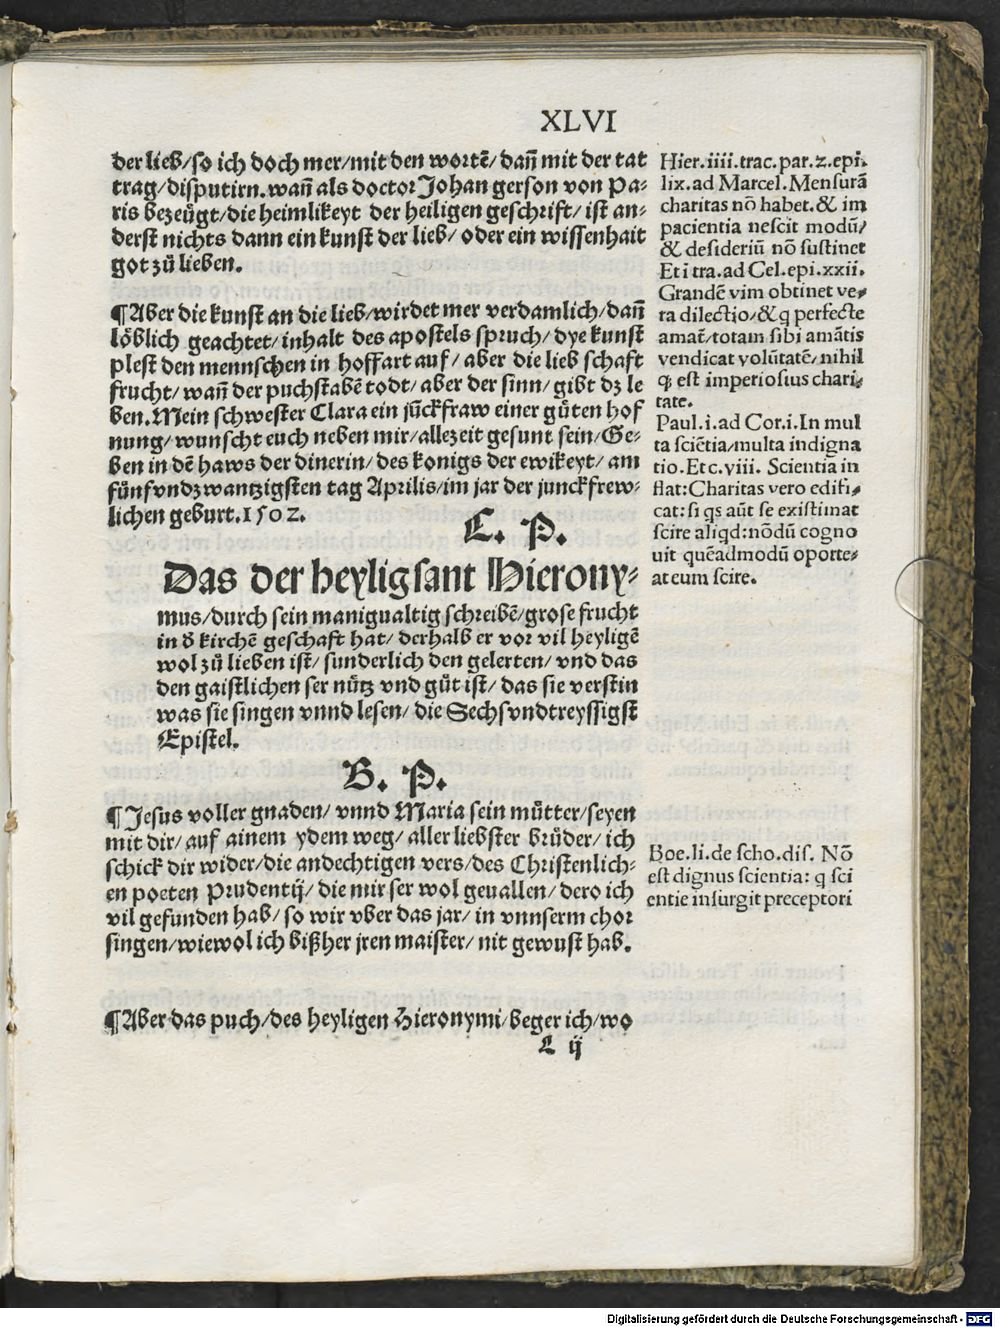 XLVI
der lieb/so ich doch mer/mit den wortē/dañ mit der tat
trag/disputirn.wañ als doctor Johan gerson von Pa-
ris bezeügt/die heimlikeyt der heiligen geschrift/ist an-
derst nichts dann ein kunst der lieb/oder ein wissenhait
got zů lieben.
¶Aber die kunst an die lieb/wirdet mer verdamlich/dañ
löblich geachtet/inhalt des apostels spruch/dye kunst
plest den mennschen in hoffart auf/aber die lieb schaft
frucht/wañ der puchstabē todt/aber der sinn/gibt dz le
ben.Mein schwester Clara ein jūckfraw einer gůten hof
nung/wunscht euch neben mir/allezeit gesunt sein/Ge-
ben in dē haws der dinerin/des konigs der ewikeyt/am
fünfvndzwantzigsten tag Aprilis/im jar der junckfrew-
lichen geburt.1502.
C. P.
Das der heylig sant Hierony-
mus/durch sein manigualtig schreibē/grose frucht
in d̕ kirchē geschaft hat/derhalb er vor vil heyligē
wol zů lieben ist/sunderlich den gelerten/vnd das
den gaistlichen ser nütz vnd gůt ist/das sie verstin
was sie singen vnnd lesen/die Sechsvndtreyssigst
Epistel.
B. P.
¶Jesus voller gnaden/vnnd Maria sein můtter/seyen
mit dir/auf ainem ydem weg/aller liebster brůder/ich
schick dir wider/die andechtigen vers/des Christenlich-
en poeten Prudentij/die mir ser wol geuallen/dero ich
vil gefunden hab/so wir vber das jar/in vnnserm chor
singen/wiewol ich bißher jren maister/nit gewust hab.
¶Aber das puch/des heyligen Hieronymi/beger ich/wo
L ij
Hier.iiii.trac.par.2.epi.
lix.ad Marcel.Mensurā
charitas nō habet.& im
pacientia nescit modū/
& desideriū nō sustinet
Et i tra.ad Cel.epi.xxii.
Grandē vim obtinet ve-
ra dilectio/& q perfecte
amat/totam sibi amātis
vendicat volūtatē/nihil
q; est imperiosius chari-
tate.
Paul.i.ad Cor.i.In mul
ta sciētia/multa indigna
tio.Et c.viii. Scientia in
flat:Charitas vero edifi-
cat:si qs aūt se existimat
scire aliqd:nōdū cogno
uit quēadmodū oporte-
at eum scire.
Boe.li.de scho.dis. Nō
est dignus scientia: q sci
entie insurgit preceptori
Digitalisierung gefördert durch die Deutsche Forschungsgemeinschaft - DFG